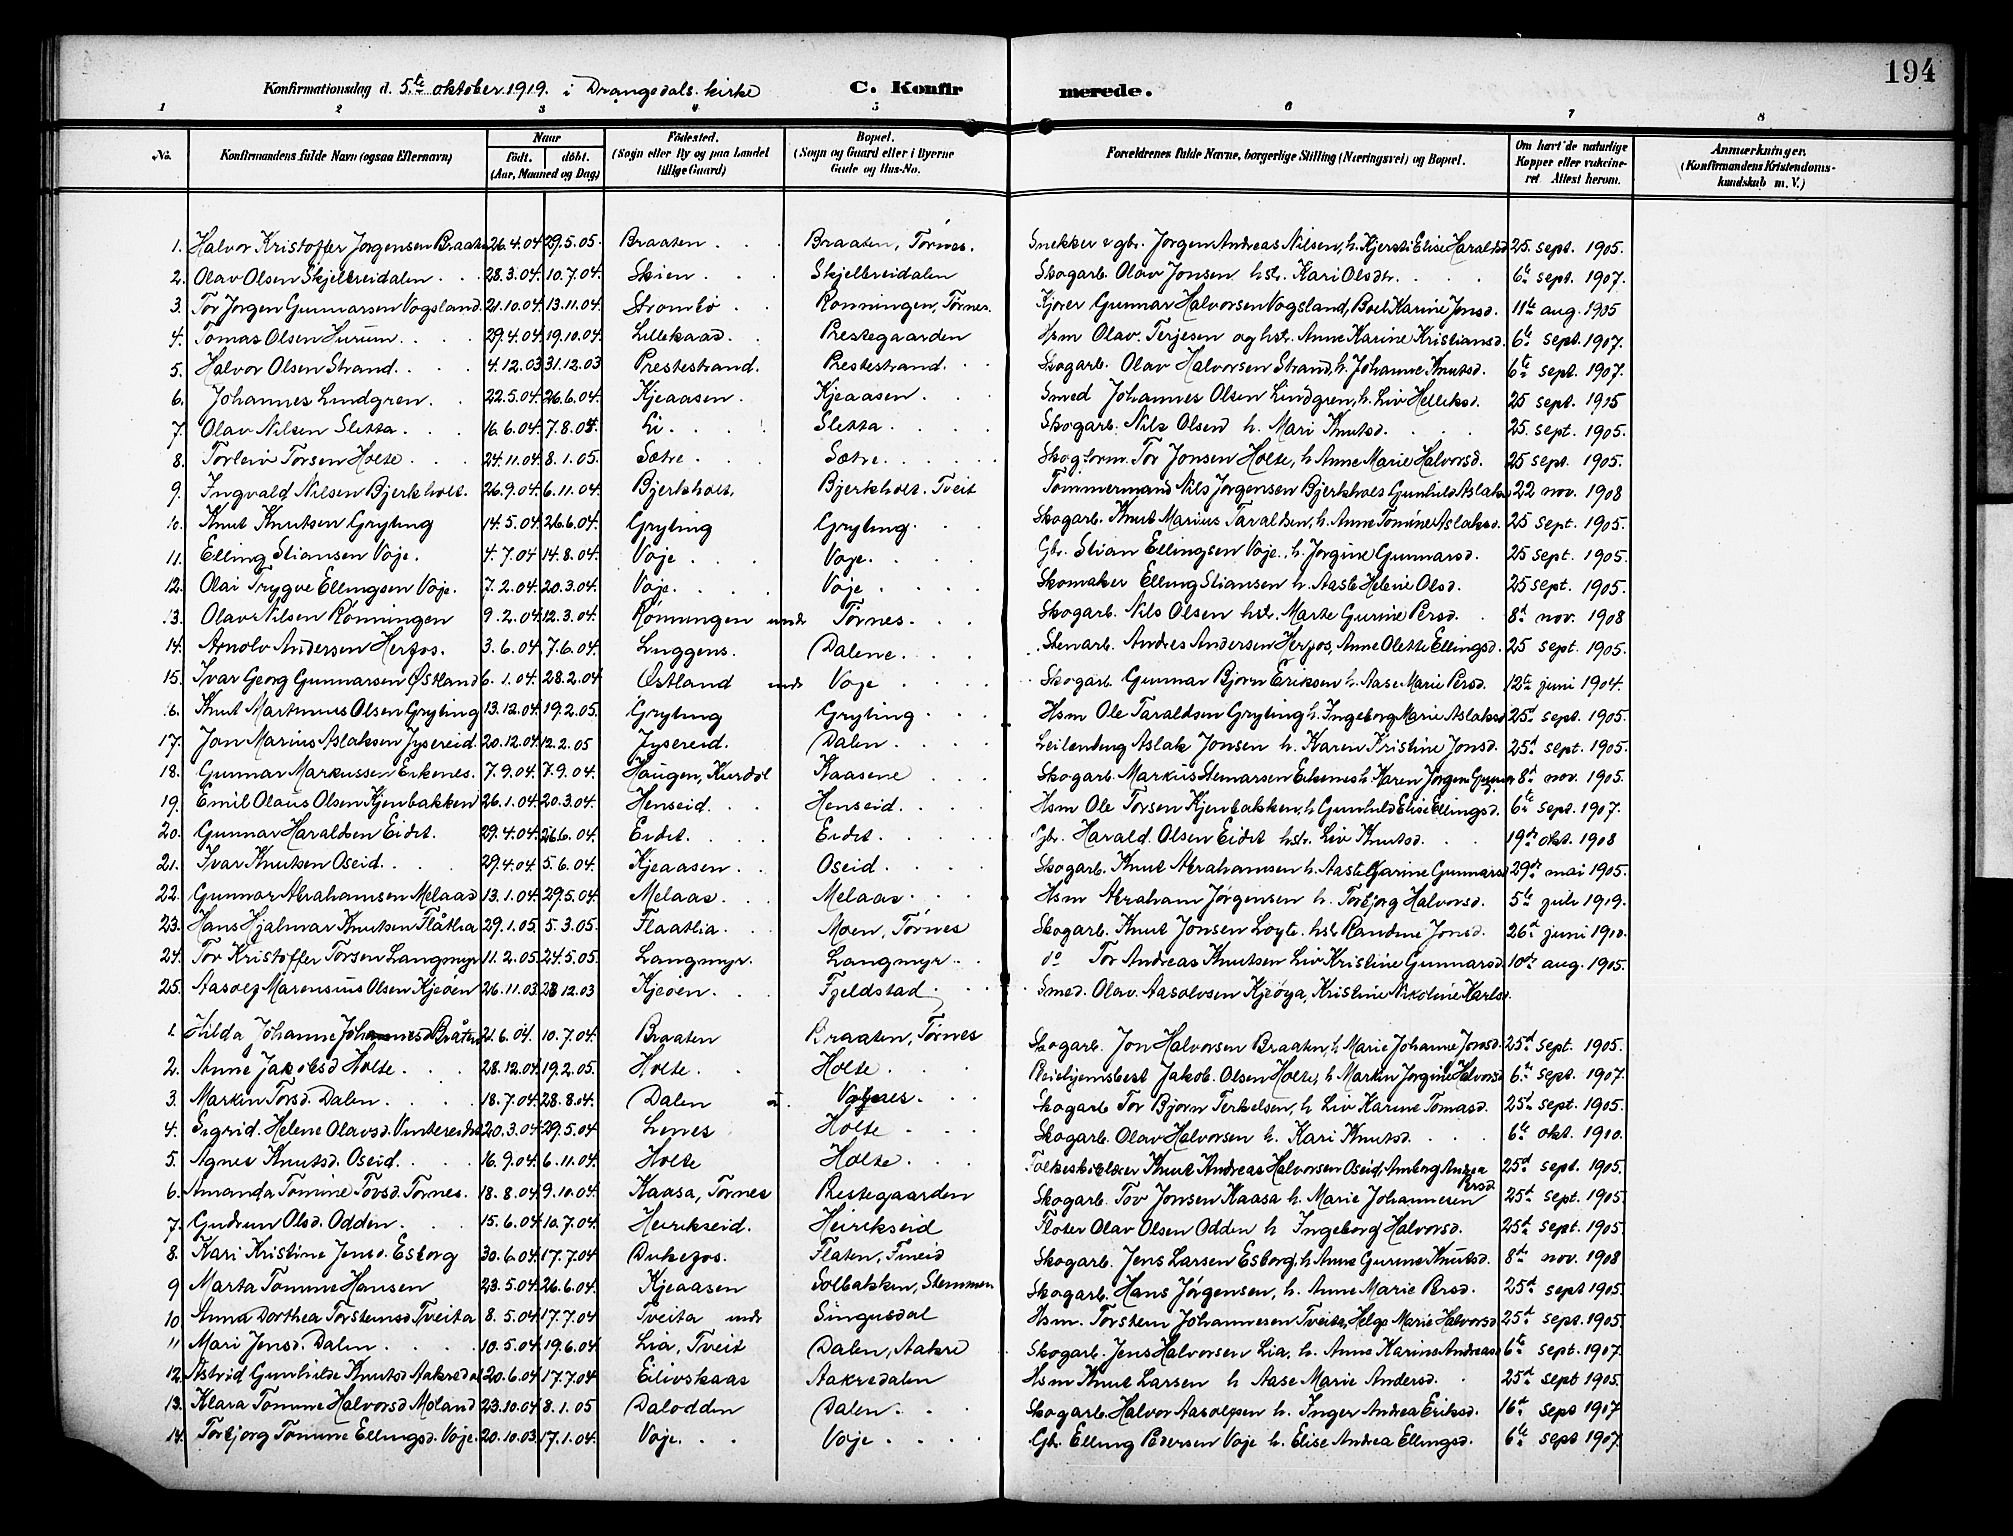 194
Konfirmationsdag d. 5te oktober 1919. i Drangedals kirke C. Konfirmerede.
1 2 3 4 5 6 7 8
No. Konfirmandens fulde Navn (ogsaa Efternavn) Naar født. døbt. (Aar, Maaned og Dag) Fødested. (Sogn eller By og paa Landet tillige Gaard) Bopæl. (Sogn og Gaard eller i Byerne Gade og Hus-No. Forældrenes fulde Navne, borgerlige Stilling (Næringsvei) og Bopæl. Om havt de naturlige Kopper eller vaksineret Attest herom. Anmærkninger. (Konfirmandens Kristendomskundskab m. V.)
1. Halvor Kristoffer Jørgensen Braaten 26.4.04 29.5.05. Braaten. Braaten, Tørnes. Snekker & gbr. Jørgen Andreas Nilsen, h. Kjersti Elise Haraldsd 25. sept. 1905.
2. Olav Olsen Skjelbreidalen 28.3.04. 10.7.04. Skien. Skjelbreidalen Skogarb. Olav Jonsen hstr. Kari Olsdtr. 6te sept. 1907.
3. Tor Jørgen Gunnarsen Vogsland. 21.10.04. 13.11.04. Strombø Rønningen, Tørnes. Kjører Gunnar Halvorsen Vogsland, Boel Karine Jonsd. 11te aug. 1905
4. Tomas Olsen Hurum. 29.4.04. 19.10.04. Lillekaas. Prestegaarden Hsm Olav Terjesen og hstr. Anne Karine Kristiansd. 6te sept. 1907.
5. Halvor Olsen Strand. 4.12.03 31.12.03 Prestestrand. Prestestrand. Skogarb. Olav Halvorsen Strand, h. Johanne Knutsd. 6te sept. 1907.
6. Johannes Lindgren. 22.5.04. 26.6.04. Kjeaasen. Kjeaasen Smed Johannes Olsen Lindgren, h. Liv Helleksd. 25 sept. 1905
7. Olav Nilsen Sletta. 16.6.04. 7.8.04. Li. Sletta Skogarb. Nils Olsen h. Mari Knutsd. 25. sept. 1905.
8. Torleiv Torsen Holte. 24.11.04. 8.1.05. Sætre. Sætre. Skogform. Tor Jonsen Holte, h Anne Marie Halvorsd. 25 sept. 1905.
9. Ingvald Nilsen Bjerkholt. 26.9.04. 6.11.04. Bjerkholt. Bjerkholt. Tveit Tømmermand Nils Jørgensen Bjerkholt Gunhild Aslaks 22 nov. 1908
10. Knut Knutsen Gryting 14.5.04. 26.6.04. Gryting Gryting. Skogarb. Knut Marius Taraldsen, h. Anne Tomine Aslaksd. 25 sept. 1905.
11. Elling Stiansen Voje. 4.7.04 14.8.04. Voje Voje. Gbr. Stian Ellingsen Voje, h. Jørgine Gunnarsd. 25 sept. 1905.
12. Olai Trygve Ellingsen Voje. 7.2.04. 20.3.04. Voje. Voje Skomaker Elling Stiansen h. Aaste Helene Olsd. 25 sept. 1905.
13. Olav Nilsen Rønningen 9.2.04. 12.3.04. Rønningen undr Tørnes. Skogarb. Nils Olsen hstr. Marte Gurine Persd. 8de nov. 1908
14. Arnolv Andersen Herfos. 3.6.04. 7.6.04. Luggens. Dalene. Stenarb. Andres Andersen Herfos, Anne Olette Ellingsd. 25 sept. 1905.
15. Ivar Georg Gunnarsen Østland 6.1.04. 28.2.04 Østland undr Voje Skogarb. Gunnar Bjørn Eriksen h. Aase Marie Persd. 12te juni 1904.
16. Knut Martinius Olsen Gryting 13.12.04. 19.2.05. Gryting Gryting. Hsm Ole Taraldsen Gryting h. Ingeborg Marie Aslaksd 25de sept. 1905.
17. Jon Marius Aslaksen Jysereid. 20.12.04. 12.2.05 Jysereid. Dalen. Leilending Aslak Jonsen h. Karen Kristine Jonsd. 25de sept. 1905.
18. Gunnar Markussen Eikenes. 7.9.04. 7.9.04. Haugen, Kurdøl Kaasene Skogarb. Markus Stenarsen Eikenes h. Karen Jørgine Gunnar 8de nov. 1905.
19. Emil Olaus Olsen Kjenbakken 26.1.04. 20.3.04. Henseid. Henseid. Hsm Ole Torsen Kjenbakken, h Gunhild Elise Ellingsd. 6te sept. 1907.
20. Gunnar Haraldsen Eidet. 29.4.04. 26.6.04. Eidet. Eidet. Gbr. Harald Olsen Eidet hstr. Liv Knutsd. 19de okt. 1908
21. Ivar Knutsen Oseid. 29.4.04. 5.6.04. Kjeaasen. Oseid. Skogarb. Knut Abrahamsen h. Aaste Karine Gunnarsd 29de mai 1905.
22. Gunnar Abrahamsen Melaas 13.1.04. 29.5.04. Melaas. Melaas. Hsm Abraham Jørgensen h. Torbjørg Halvorsd. 5te juli 1919.
23. Hans Hjalmar Knutsen Flåtlia 29.1.05. 5.3.05. Flaatlia. Moen, Tørnes Skogarb. Knut Jonsen Loyte. hstr Randine Jonsd. 26de juni 1910.
24. Tor Kristoffer Torsen Langmyr 11.2.05. 24.5.05. Langmyr. Langmyr. do Tor Andreas Knutsen Liv Kristine Gunnarsd. 10de aug. 1905.
25. Aasolf Marensius Olsen Kjeøen 26.11.03. 28.12.03 Kjeøen. Fjeldstad. Smed. Olav Aasolvsen Kjeøya, Kristine Nikoline Karlsd.
1. Hilda Johanne Johannesd Bråten 21.6.04. 10.7.04. Braaten Braaten, Tørnes Skogarb. Jon Halvorsen Braaten, h. Marie Johanne Jonsd. 25de sept. 1905.
2. Anne Jakobsd Holte. 28.12.04. 19.2.05. Holte. Holte Jakob. Olsen Holte, h Marken Jørgine Halvorsd 6te sept. 1907.
3. Marken Torsd. Dalen. 18.7.04. 28.8.04. Dalen Skogarb Tor Bjørn Terkelsen, h Liv Karine Tomasd. 25de sept. 1905.
4. Sigrid. Helene Olavsd. 20.3.04. 29.5.04 Lenes Holte Skogarb. Olav Halvorsen h. Kari Knutsd. 6te okt. 1910.
5. Agnes Knutsd. Oseid. 16.9.04. 6.11.04. Holte Holte. Knut Andreas Halvorsen Oseid, Anborg Andrea Persd 25de sept. 1905.
6. Amanda Tomine Tovsd. Tørnes. 18.8.04. 9.10.04. Kaasa, Tørnes Prestegaarden Skogarb. Tov Jonsen Kaasa h. Marie Johannesen 25de sept. 1905.
7. Gudrun Olsd. Odden. 15.6.04. 10.7.04. Heirikseid. Heirikseid Fløter Olav Olsen Odden h Ingeborg Halvorsd. 25de sept. 1905.
8. Kari Kristine Jensd. Esborg 30.6.04. 17.7.04 Dukefos. Flaten, Tveid Skogarb. Jens Larsen Esborg, h Anne Gurine Knutsd. 8de nov. 1908
9 Marta Tomine Hansen 23.5.04. 26.6.04. Kjeaasen Solbakken, Stemmen Skogarb. Hans Jørgensen, h. Anne Marie Persd. 25de sept 1905.
10 Anna Dorthea Torsteinsd. Tveita 8.5.04. 17.7.04 Tveita undr Singusdal Hsm. Torstein Johannesen Tveita, Helge Marie Halvorsd 25de sept. 1905.
11 Mari Jensd. Dalen. 10.5.04. 19.6.04 Lia, Tveit Dalen, Aakre Skogarb. Jens Halvorsen Lia, h. Anne Karine Andreasd 6te sept. 1907.
12. Astrid Gunhilde Knutsd Aakredal 20.6.04. 17.7.04 Eilivskaas Aakredalen Hsm Knut Larsen h Aase Marie Andersd. 25de sept 1905.
13. Klara Tomine Halvorsd Moland 23.10.04. 8.1.05 Dalodden Dalen. Skogarb. Halvor Aasolfsen h. Inger Andrea Eriksd. 16de sept 1907
14. Torbjørg Tomine Ellingsd. Voje. 20.10.03. 17.1.04. Voje. Voje Gbr. Elling Pedersen Voje h. Elise Andrea Ellingsd. 6te sept 1907.